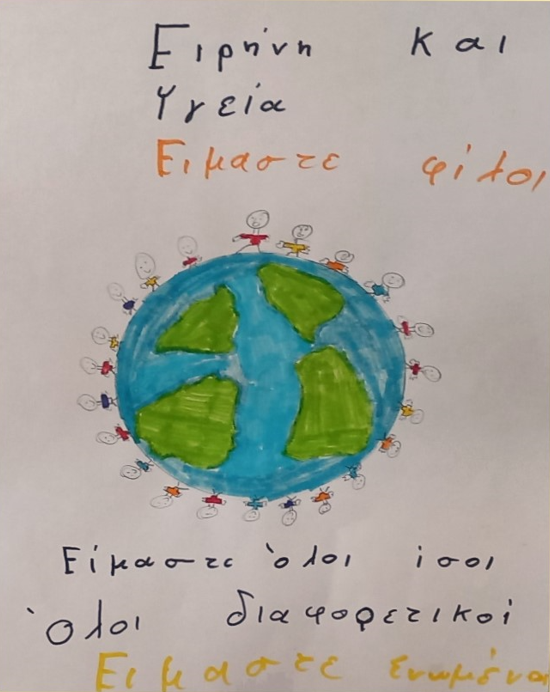 Ειρήνη και
Υγεία
Ειμαστε φίλοι
Είμαστε όλοι ίσοι
όλοι διαφορετικοί
Ειμαστε ενωμένα